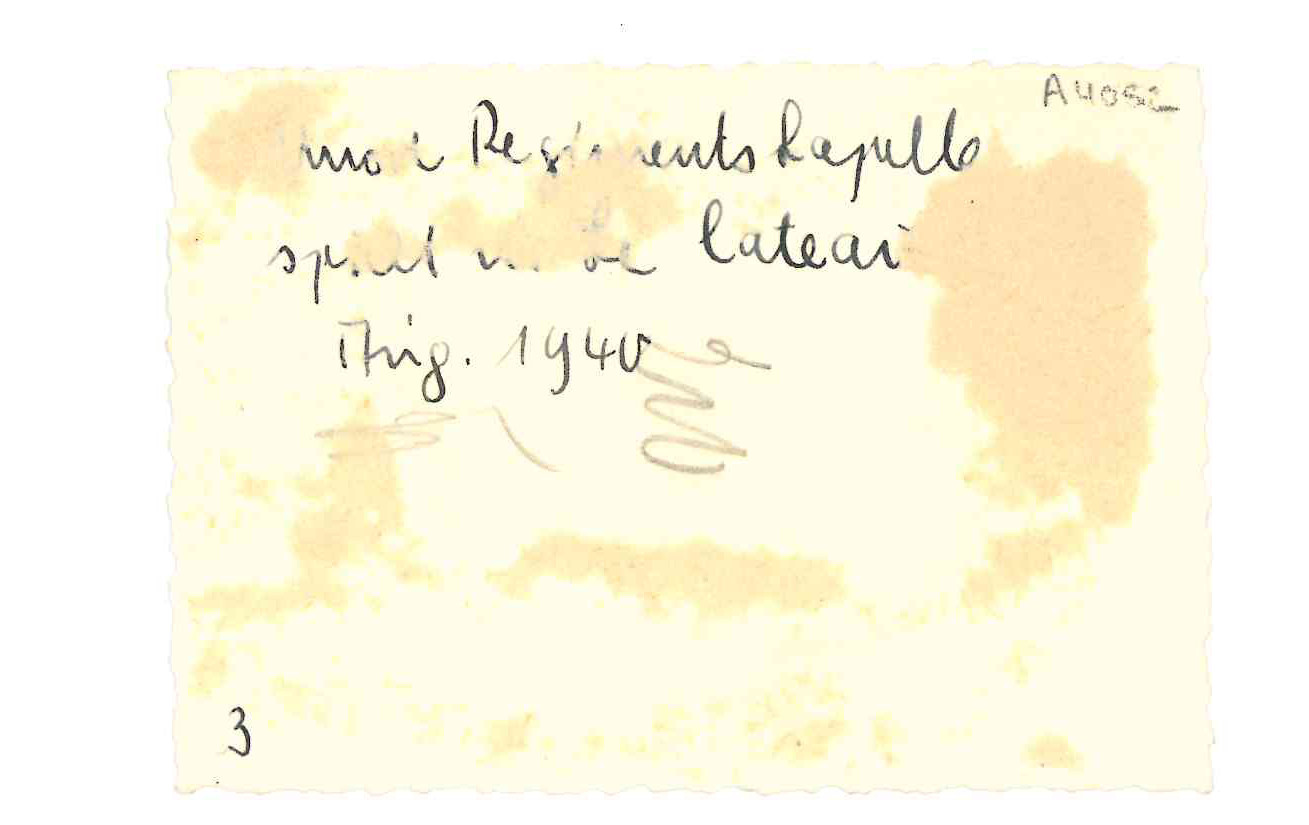 A4052
Unsere Regimentskapelle
spielt in Le Cateau
Aug. 1940
3